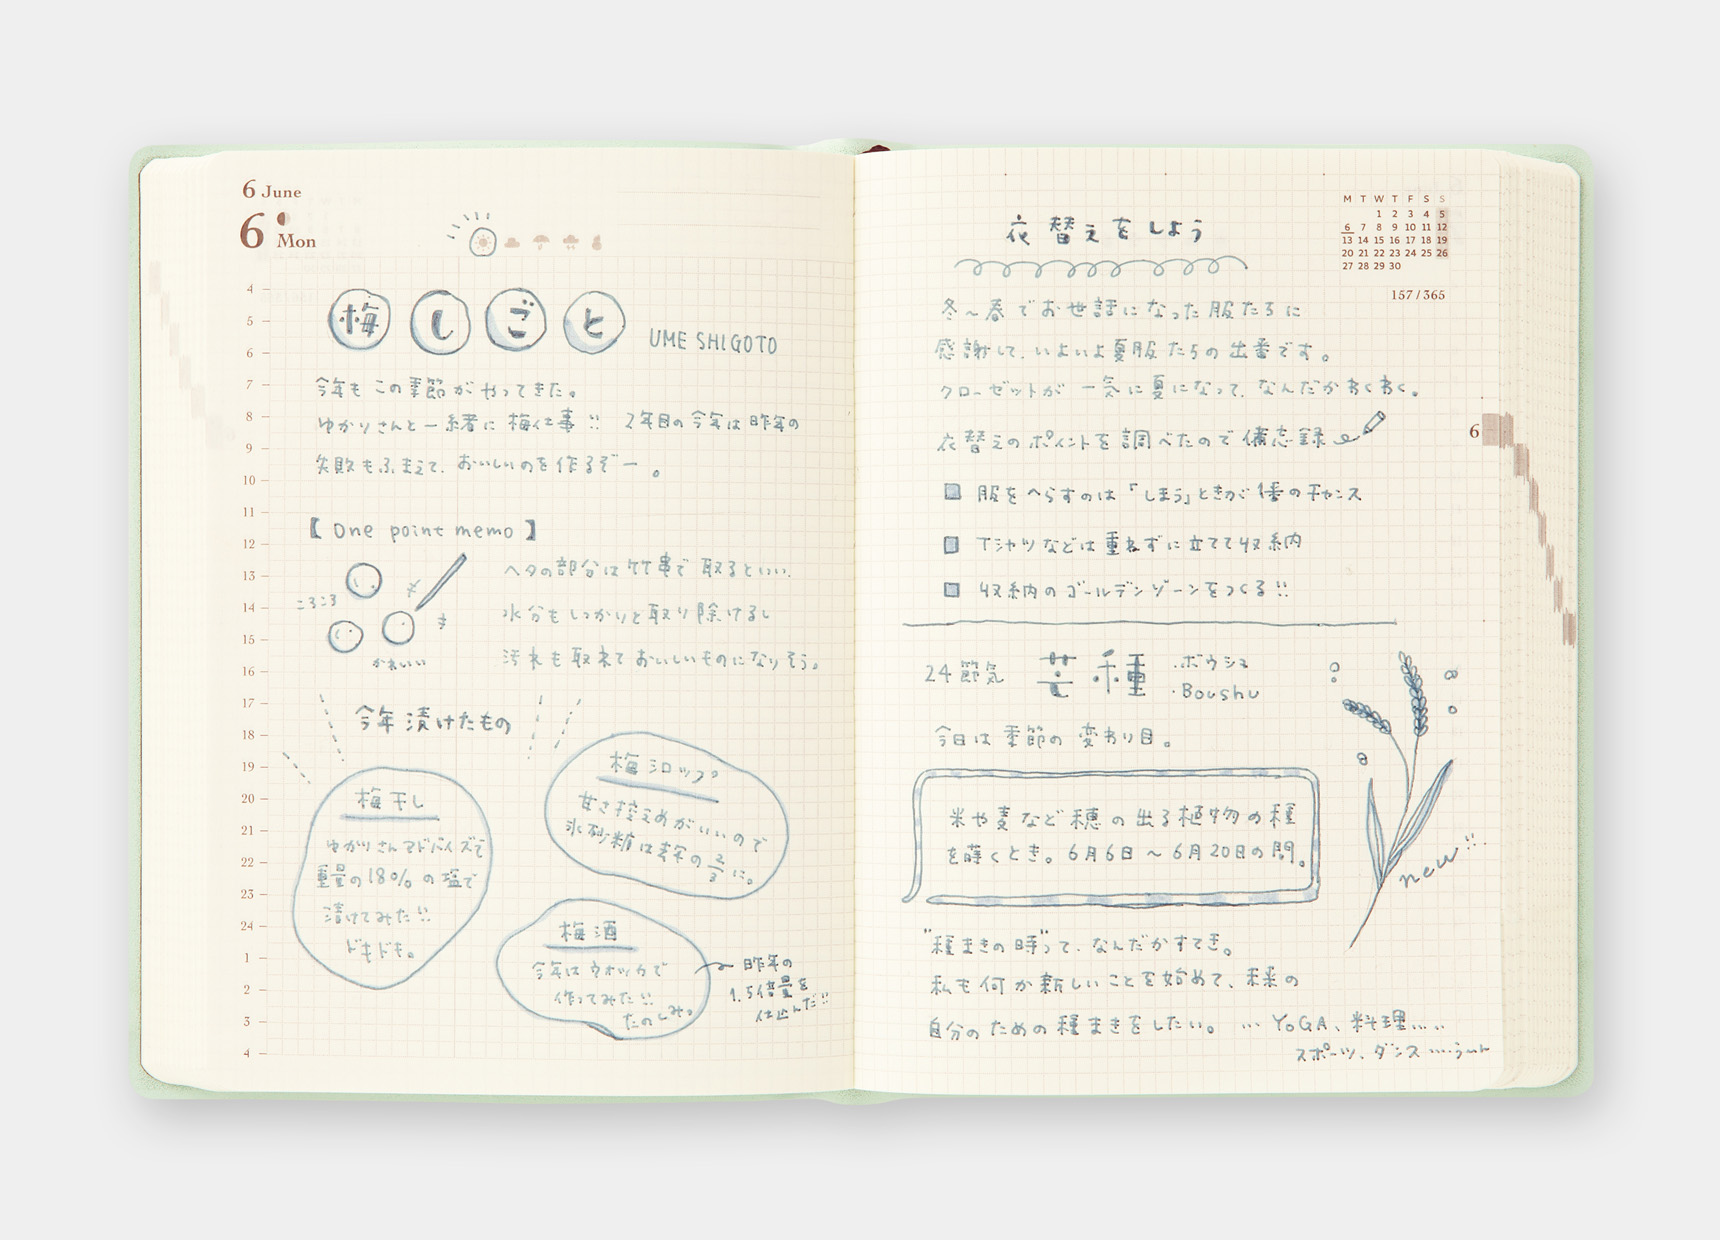 6 June
6 Mon
4
5
6
7
8
9
10
11
12
13
14
15
16
17
18
19
20
21
22
23
24
1
2
3
4
梅しごと
UME SHIGOTO
今年もこの季節がやってきた。
ゆかりさんと一緒に梅仕事!! 2年目の今年は昨年の
失敗もふまえて、おいしいのを作るぞー。
【One point memo】
ころころ
かわいい
ヘタの部分は竹串で取るといい、
水分もしっかりと取り除けるし
汚れも取れておいしいものになりそう。
今年漬けたもの
梅干し
ゆかりさんアドバイスで
重量の18%の塩で
漬けてみた!!
ドキドキ。
梅シロップ
甘さ控えめがいいので
氷砂糖は
に。
梅酒
今年はウォッカで
作ってみた!!
たのしみ。
昨年の
1.5倍量を
仕込んだ!!
衣替えをしよう
M T W T F S S
1 2 3 4 5
6 7 8 9 10 11 12
13 14 15 16 17 18 19
20 21 22 23 24 25 26
27 28 29 30
157/365
冬〜春でお世話になった服たちに
感謝して、いよいよ夏服たちの出番です。
クローゼットが一気に夏になって、なんだかわくわく。
衣替えのポイントを調べたので備忘録
6
服をへらすのは「しまう」ときが1番のチャンス
Tシャツなどは重ねずに立てて収納
収納のゴールデンゾーンをつくる!!
24節気 芒種 ・ボウシュ
・Boushu
今日は季節の変わり目。
米や麦など穂の出る植物の種
を蒔くとき。6月6日〜6月20日の間。
new!!
"種まきの時"って、なんだかすてき。
私も何か新しいことを始めて、未来の
自分のための種まきをしたい。 … YOGA、料理……
スポーツ、ダンス……うーん